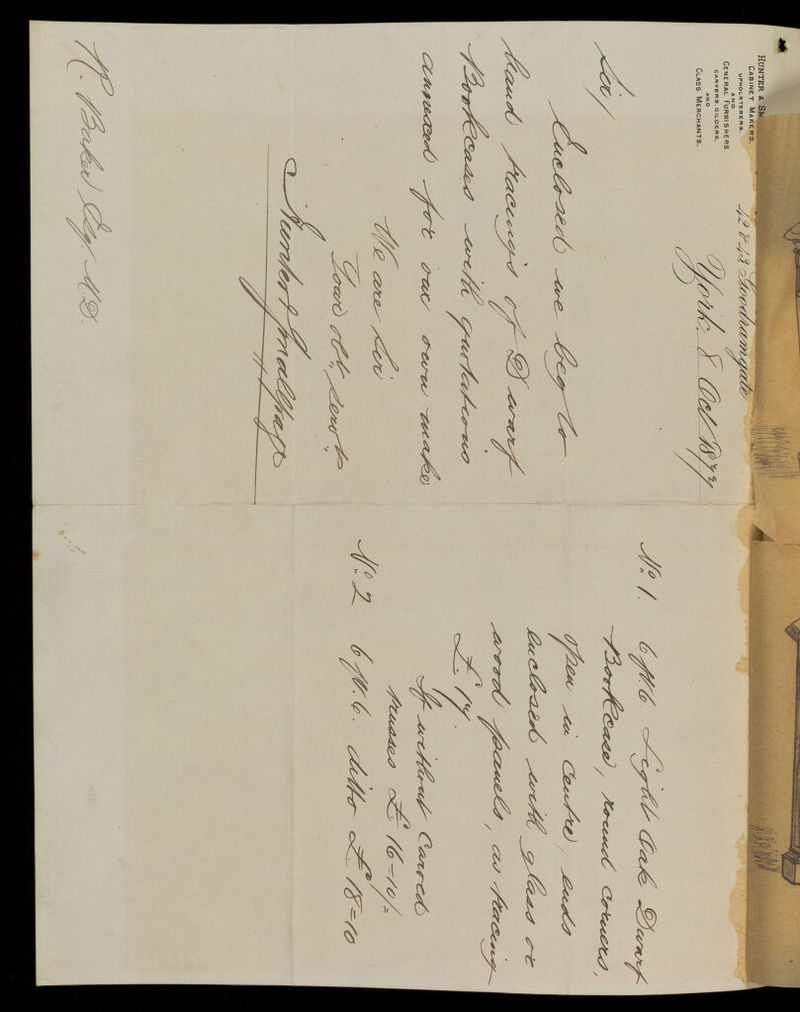 HUNTER &
CABINET MAKERS,
UPHOLSTERERS,
AND
GENERAL FURNISHERS.
CARVERS, GILDERS,
AND
GLASS MERCHANTS.
42 & 43 Goodramgate
York, 8 Oct 1877
Sir/
Enclosed we beg to
hand tracings of Dwarf
Bookcases with quotations
annexed for our own make
We are Sir
Your obt. servts.
Hunter & Smallpage
R. Baker Esq. M.D.
No. 1. 6ft.6 Light Oak Dwarf
Bookcase, round corners,
open in centre, ends
enclosed with glass or
wood panels, as tracing
£17.
If without carved
trusses £16=10/=
No. 2 6ft.6. ditto £18=10